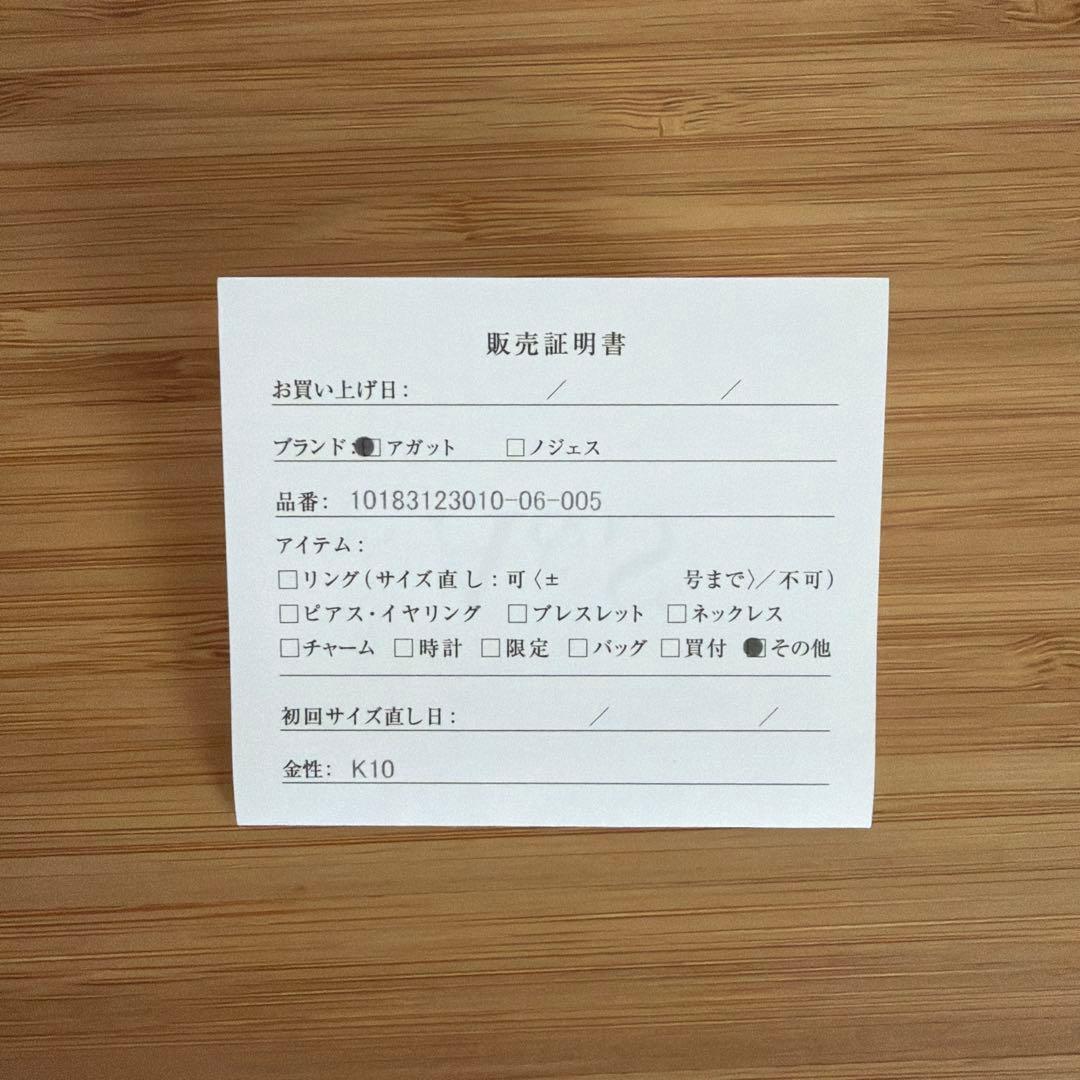 販売証明書
お買い上げ日： ／ ／
ブランド：●アガット □ノジェス
品番： 10183123010-06-005
アイテム：
□リング（サイズ直し：可〈± 号まで〉／不可）
□ピアス・イヤリング □ブレスレット □ネックレス
□チャーム □時計 □限定 □バッグ □買付 ●その他
初回サイズ直し日： ／ ／
金性： K10